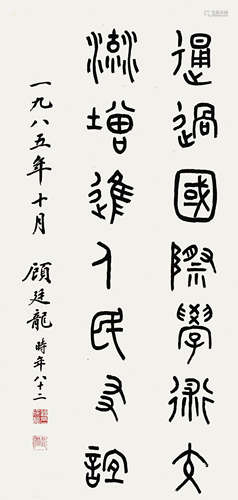 通過國際學術交
流增進人民友誼
一九八五年十月 顧廷龍時年八十二